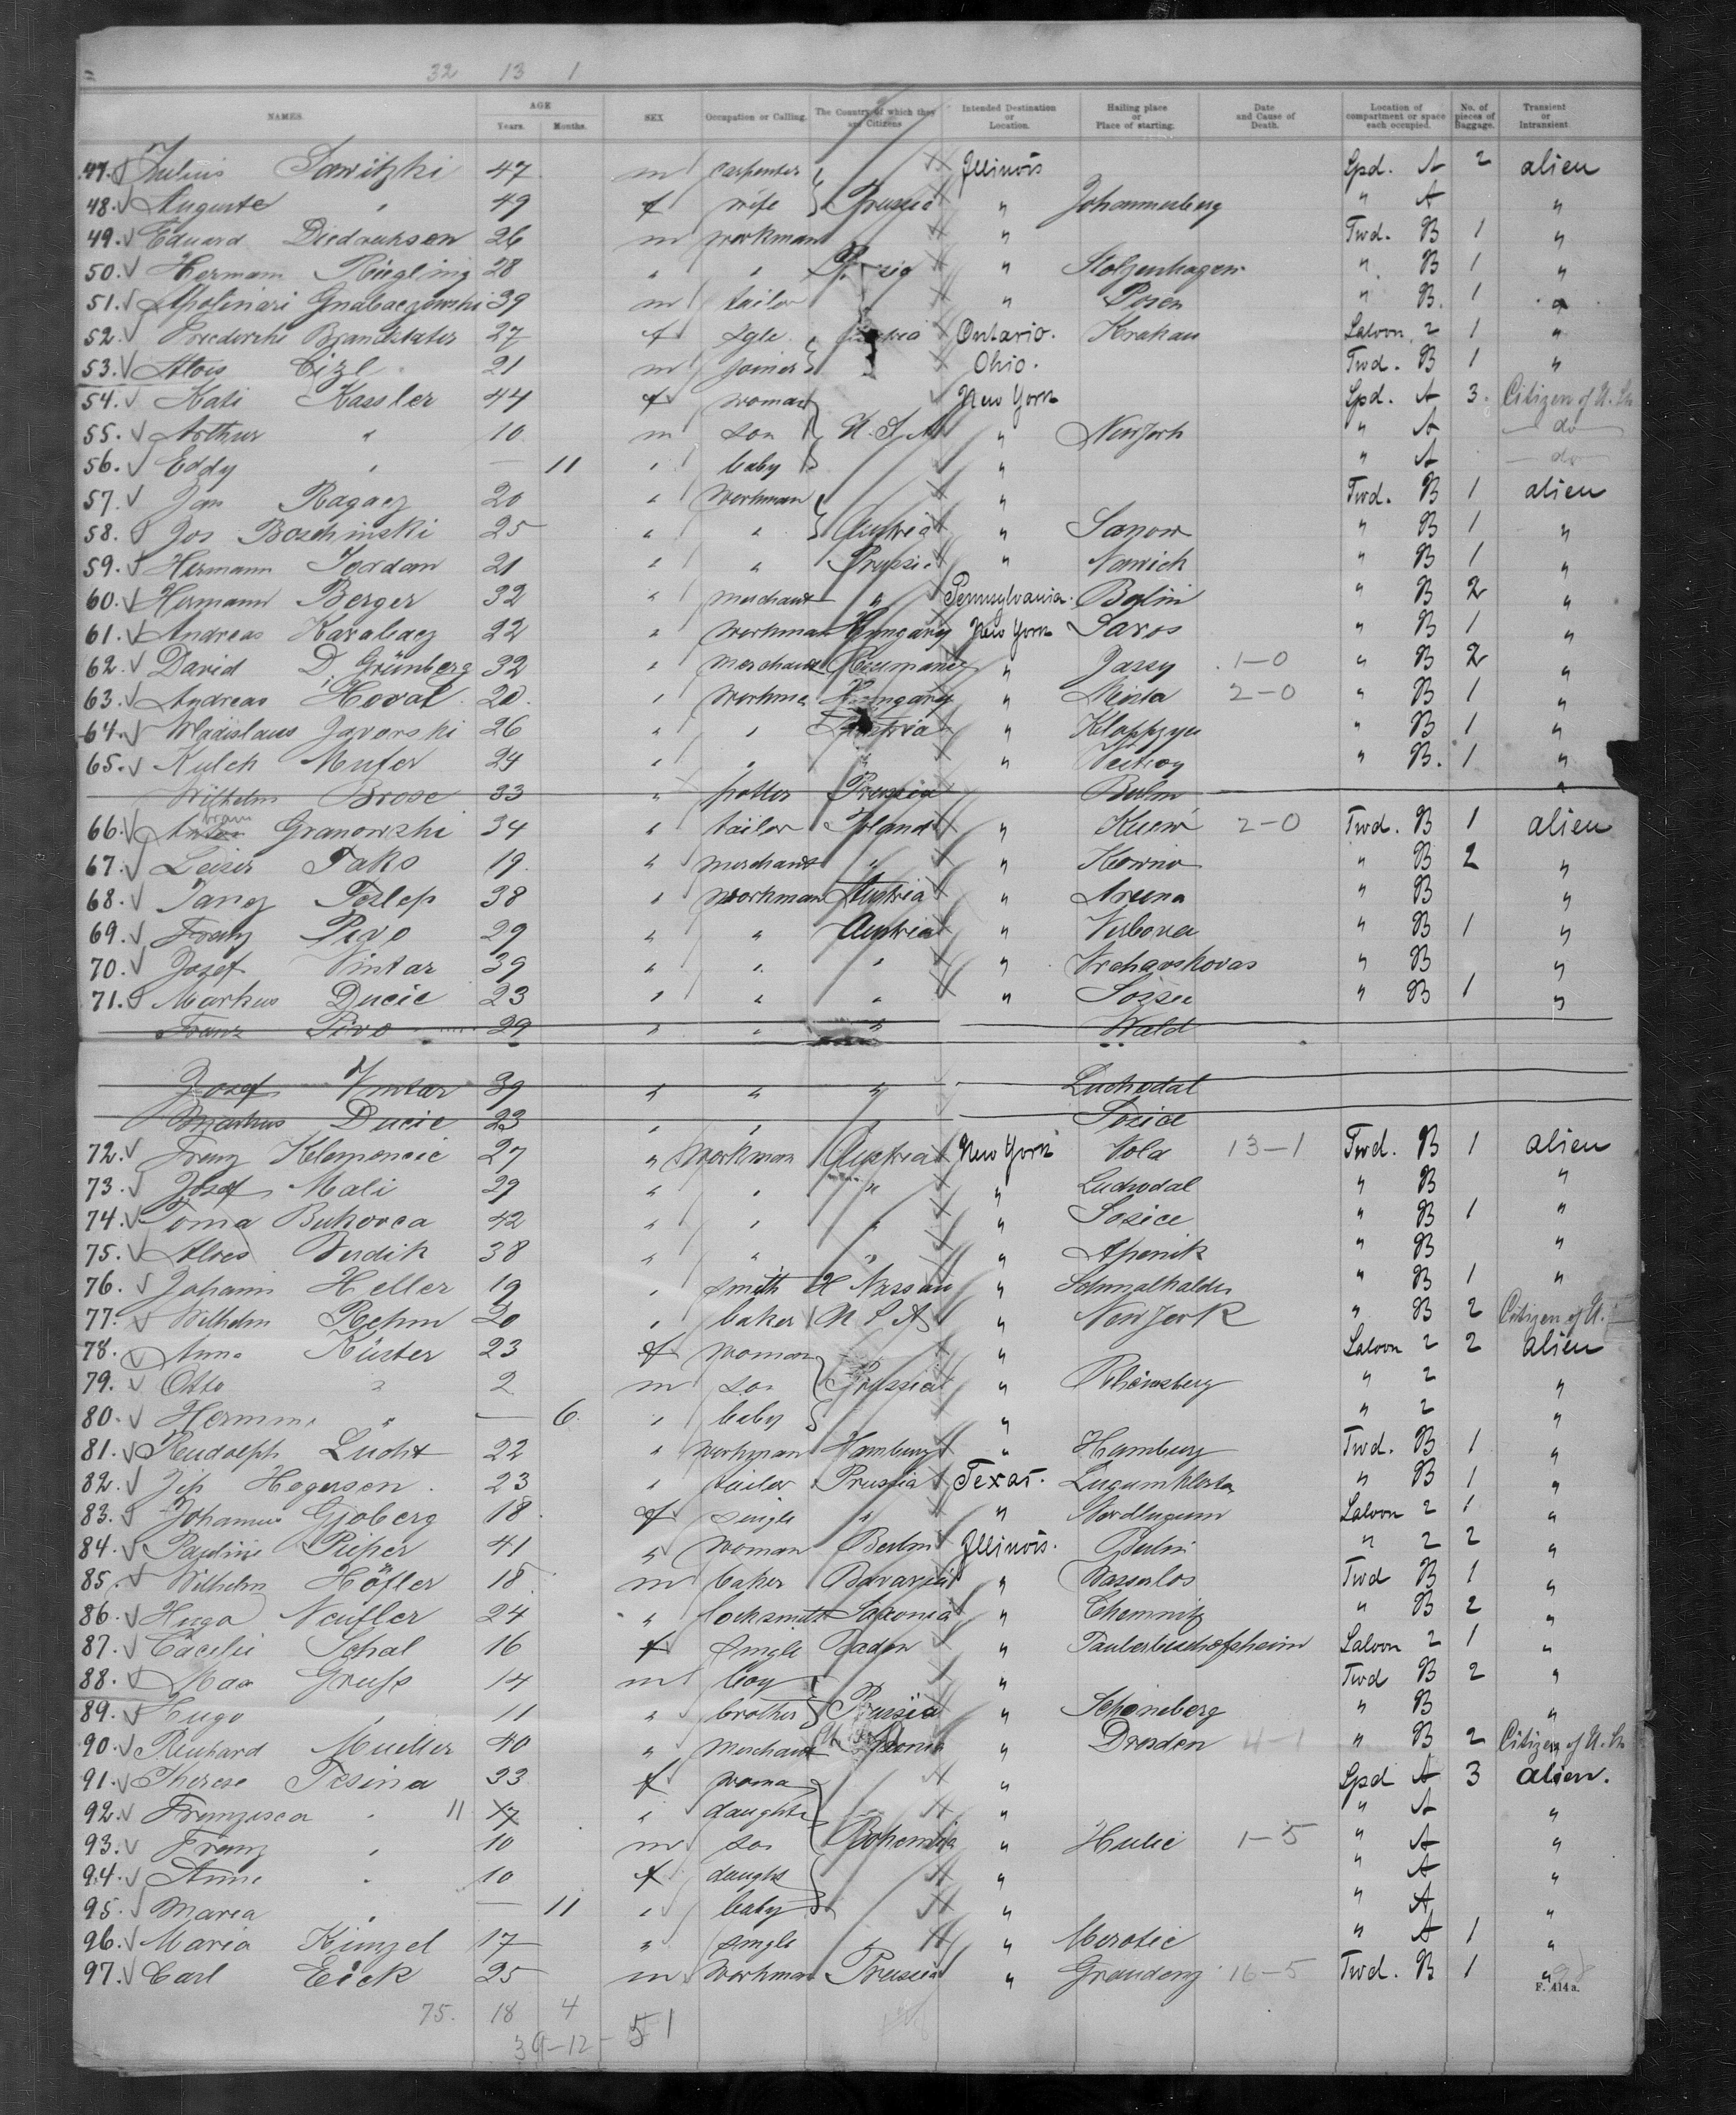 32 13 1
NAMES. AGE Years. Months. SEX Occupation or Calling. The Country of which they are Citizens Intended Destination or Location. Hailing place or Place of starting. Date and Cause of Death. Location of compartment or space each occupied. No. of pieces of Baggage. Transient or Intransient.
47. Julius Sawitzki 47 m carpenter Illinois Spd. A 2 alien
48. Auguste " 49 f wife Prussia " Johannesberg " A "
49. Eduard Diedrichsen 26 m workman " Twd. B 1 "
50. Hermann Riegling 28 " " " Stolzenhagen " B 1 "
51. Apolinari 39 m tailor " " Posen " B. 1 "
52. Friederike Brandstater 27 f sgle. Ontario. Krakau Saloon 2 1 "
53. Alois Eizl 21 m joiner Ohio. Twd. B 1 "
54. Kati Kassler 44 f woman New York Spd. A 3. Citizen of U. S.
55. Arthur " 10 m son U. S. A " New York " A do
56. Eddy " — 11 " baby " " A do
57. Jan Ragacz 20 " workman " Twd. B 1 alien
58. Jos Boschinski 25 " " Austria " Sanow " B 1 "
59. Hermann Jordan 21 " " Prussia " Norwich " B 1 "
60. Hermann Berger 32 " merchant " Pennsylvania. Berlin " B 2 "
61. Andreas Karabacz 22 " workman Hungary New York Saros " B 1 "
62. David D. Grünberg 32 " merchant Roumania " Jassy 1-0 " B 2 "
63. Andreas Hovat 20 " workma Hungary " 2-0 " B 1 "
64. Wladislaus Javorski 26 " " Austria " " B 1 "
65. Kulch Mufer 24 " " " " " B. 1 "
Wilhelm Brose 33 " potter Prussia Berlin "
66. Abram Granowski 34 " tailor Poland " Kiew 2-0 Twd. B 1 alien
67. Leiser Tako 19 " merchant " " Kowno " B 2 "
68. Janez Teslep 38 " workman Austria " " B "
69. Franz Pivo 29 " " Austria " Verbova " B 1 "
70. Josef Vintar 39 " " " " " B "
71. Markus Ducic 23 " " " " " B 1 "
Franz Pivo 29 " " " Wald
Josef Vintar 39 " " " Luchodal
Markus Ducic 23 " " Sosice
72. Franz Klemencic 27 " Workman Austria New York Vola 13-1 Twd. B 1 alien
73. Josef Mali 29 " " " " Luchodal " B "
74. Toma Bukovca 42 " " " " Sosice " B 1 "
75. Alois Verdik 38 " " " " Apenik " B "
76. Johann Heller 19 " smith H Nassau " Schmalkalden " B 1 "
77. Wilhelm Rehm 20 " baker U S A " New York " B 2 Citizen of U. S.
78. Anna Küster 23 f woman " Saloon 2 2 alien
79. Otto " 2 m son Prussia " Rheinsberg " 2 "
80. Hermine " — 6 " baby " " 2 "
81. Rudolph Lucht 22 " workman Hamburg " Hamburg Twd. B 1 "
82. Jip Hegerson 23 " tailor Prussia Texas. Lugumkloster " B 1 "
83. Johanne Gjoberg 18 f single " " Nordlugum Saloon 2 1 "
84. Pauline Pieper 41 " woman Berlin Illinois. Berlin " 2 2 "
85. Wilhelm Höfler 18 m baker Bavaria " Twd B 1 "
86. Hugo Neufler 24 " locksmith Saxonia " Chemnitz " B 2 "
87. Cäcilie Schal 16 f single Baden " Tauberbischofsheim Saloon 2 1 "
88. Max Gruss 14 m boy " Twd B 2 "
89. Hugo " 11 " brother Prussia " Schöneberg " B "
90. Richard Mueller 40 " merchant " Dresden 4-1 " B 2 Citizen of U. S.
91. Therese Tesina 33 f woma " Spd A 3 alien.
92. Franzisca " 11 " daughte " " A "
93. Franz " 10 m son Bohemia " Hulic 1-5 " A "
94. Anna " 10 f daught " " A "
95. Maria " — 11 " baby " " A "
96. Maria Kinzel 17 " single " Merotic " A 1 "
97. Carl Eick 25 m workman Prussia " Graudenz 16-5 Twd. B 1 "
F. 414 a.
75. 18 4
39-12- 51